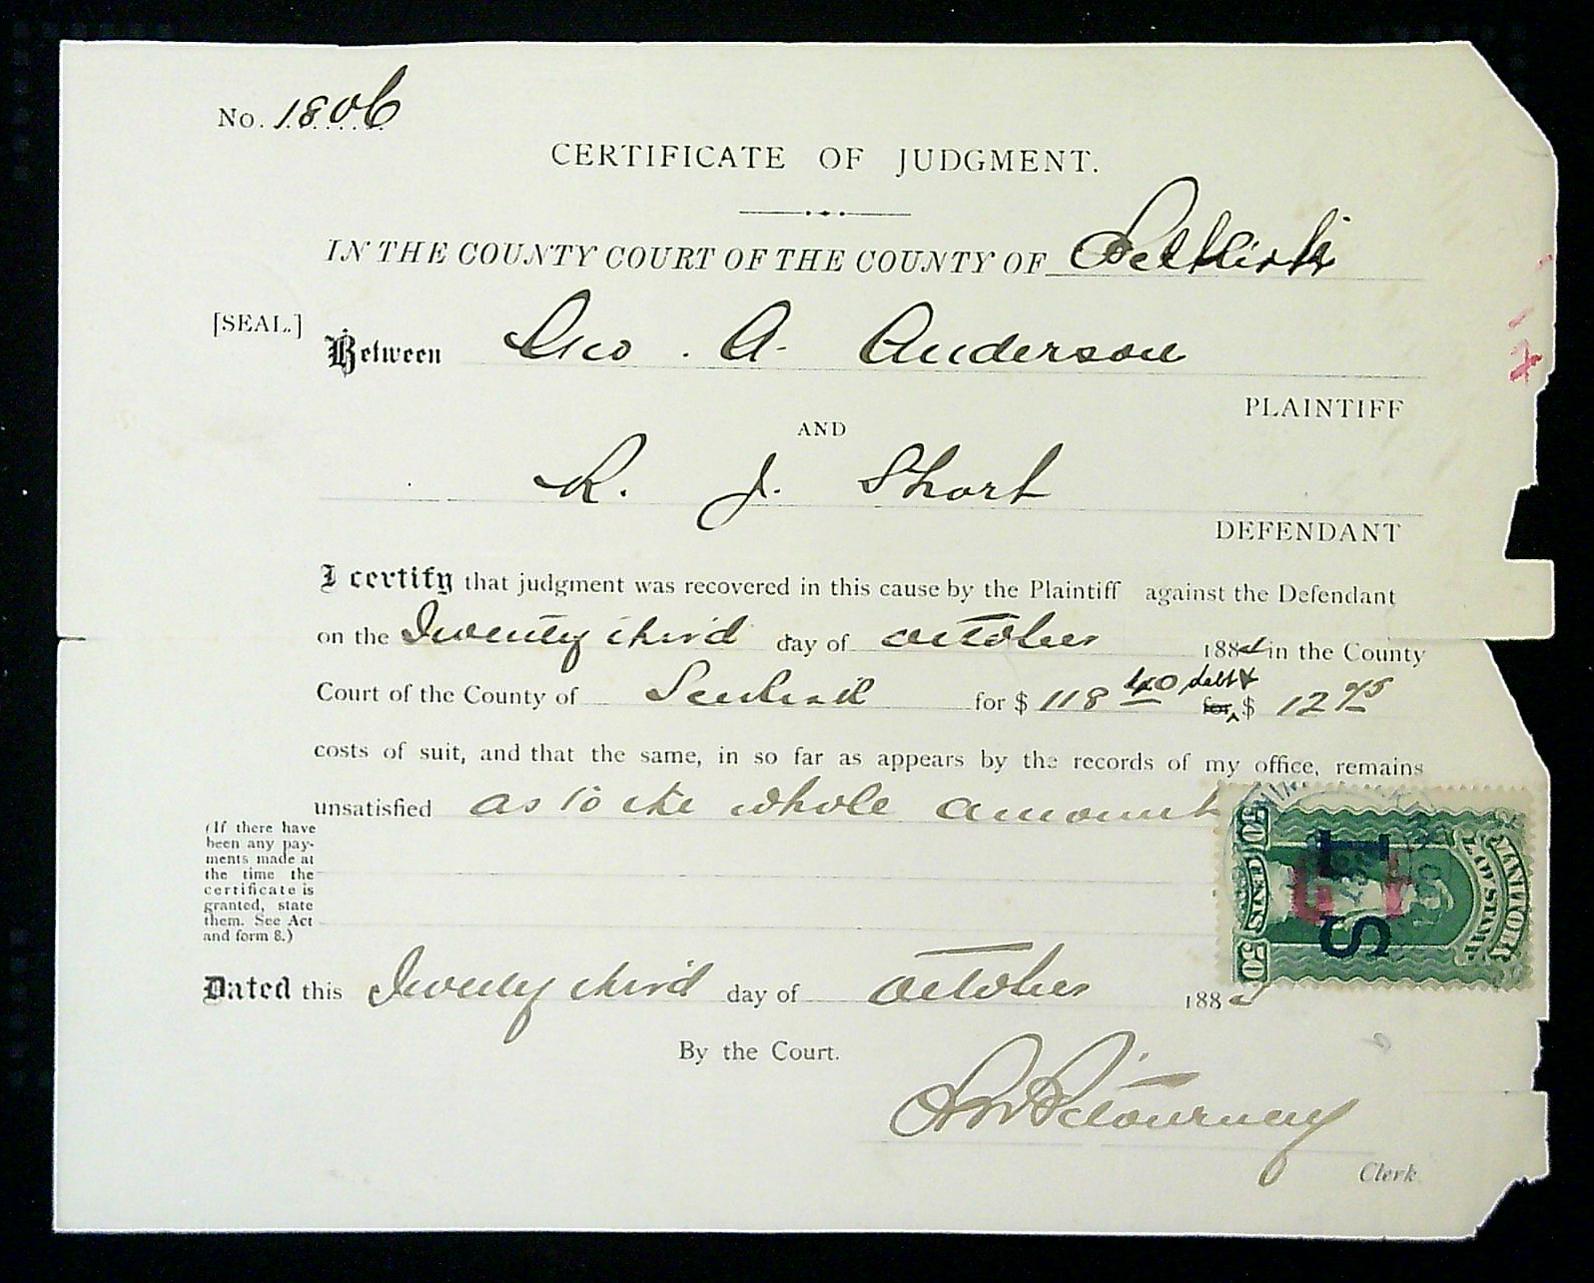 No. 1806
CERTIFICATE OF JUDGMENT.
IN THE COUNTY COURT OF THE COUNTY OF Selkirk
[SEAL.]
Between Geo. A. Anderson
PLAINTIFF
AND
R. J. Short
DEFENDANT
I certify that judgment was recovered in this cause by the Plaintiff against the Defendant
on the Twenty third day of October 188 in the County
Court of the County of Selkirk for $ 118 40 debt & for $ 12 95
costs of suit, and that the same, in so far as appears by the records of my office, remains
unsatisfied as to the whole amount
(If there have
been any pay-
ments made at
the time the
certificate is
granted, state
them. See Act
and form 8.)
Dated this Twenty third day of October 188
By the Court.
Clerk
50 CENTS 50
LAW STAMP
L S